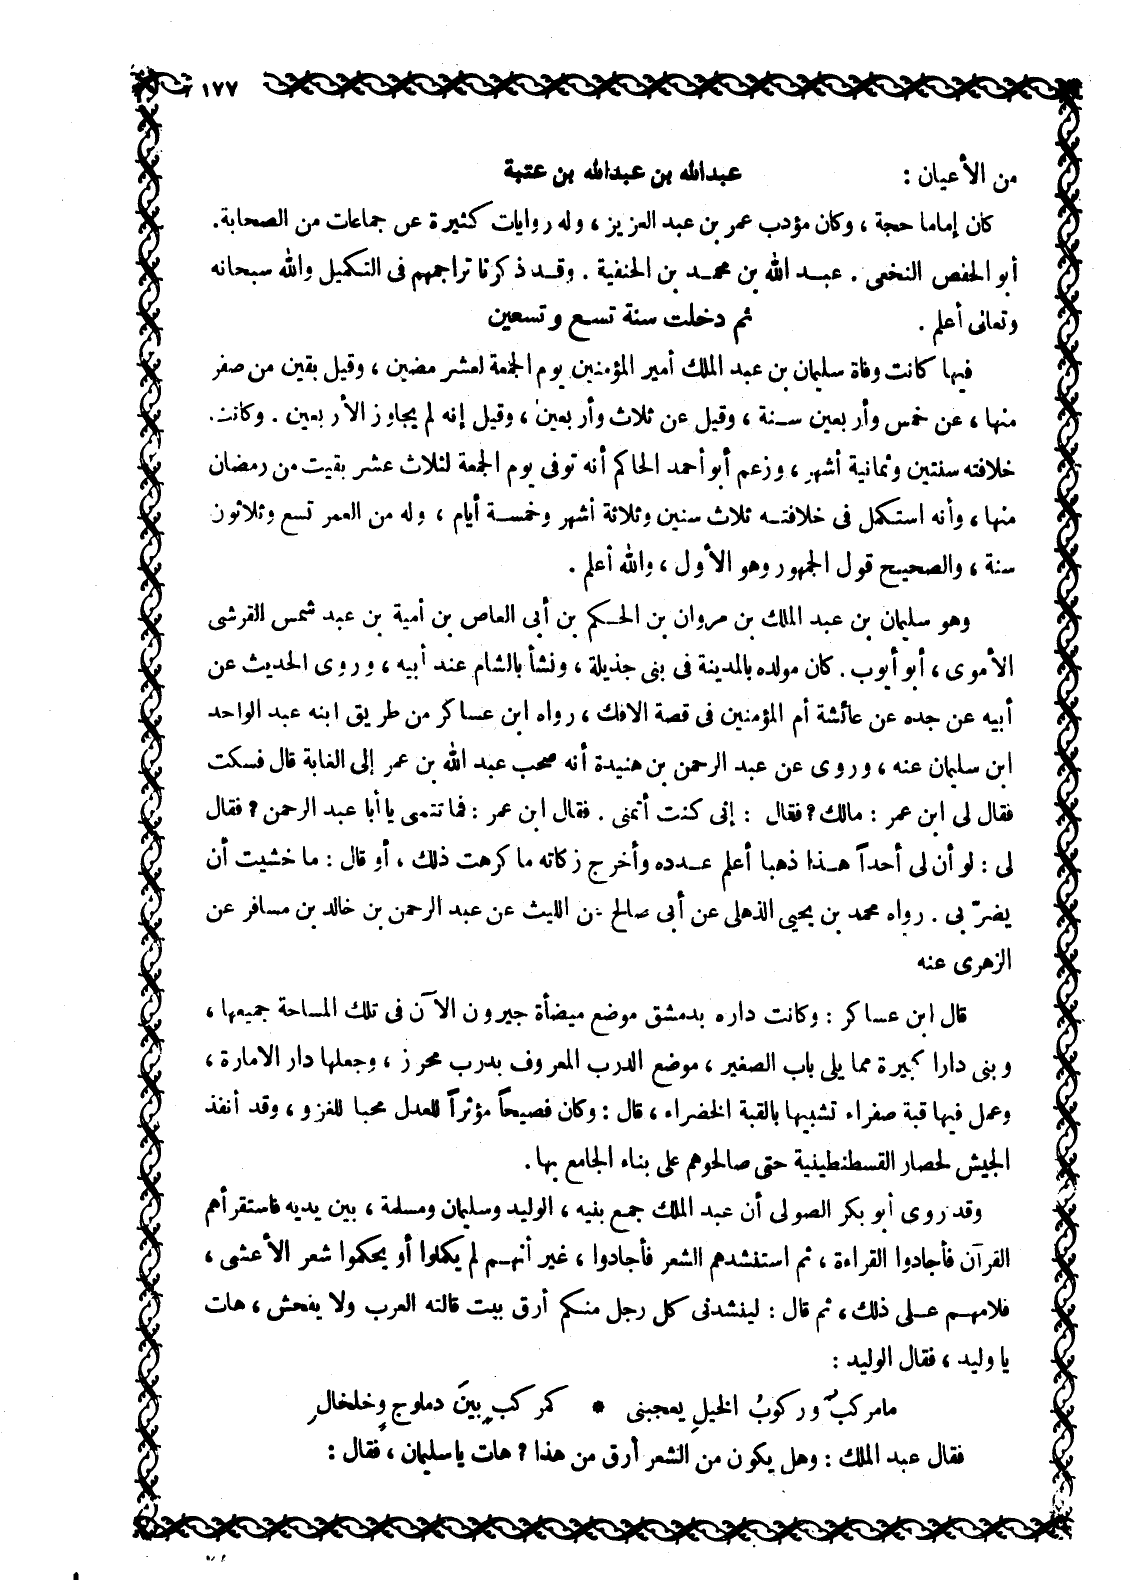 ١٧٧
من الأعيان : عبدالله بن عبدالله بن عتبة
كان إماما حجة ، وكان مؤدب عمر بن عبد العزيز ، وله روايات كثيرة عن جماعات من الصحابة .
أبو الحفص النخعى . عبـد الله بن محمـد بن الحنفية . وقـد ذكرنا تراجمهم فى التكميل والله سبحانه
وتعالى أعلم . ثم دخلت سنة تسع وتسعين
فيها كانت وفاة سليمان بن عبد الملك أمير المؤمنين يوم الجمعة لعشر مضين ، وقيل بقين من صفر
منها ، عن خمس وأربعين سـنة ، وقيل عن ثلاث وأربعين ، وقيل إنه لم يجاوز الأربعين . وكانت
خلافته سنتين وثمانية أشهر ، وزعم أبو أحمد الحاكم أنه توفى يوم الجمعة لثلاث عشر بقيت من رمضان
منها ، وأنه استكمل فى خلافتـه ثلاث سنين وثلاثة أشهر وخمسـة أيام ، وله من العمر تسع وثلاثون
سنة ، والصحيح قول الجمهور وهو الأول ، والله أعلم .
وهو سليمان بن عبد الملك بن مروان بن الحـكم بن أبى العاص بن أمية بن عبد شمس القرشى
الأموى ، أبو أيوب . كان مولده بالمدينة فى بنى جذيلة ، ونشأ بالشام عند أبيه ، وروى الحديث عن
أبيه عن جده عن عائشة أم المؤمنين فى قصة الافك ، رواه ابن عساكر من طريق ابنه عبد الواحد
ابن سليمان عنه ، وروى عن عبد الرحمن بن هنيدة أنه صحب عبد الله بن عمر إلى الغابة قال فسكت
فقال لى ابن عمر : مالك ؟ فقال : إنى كنت أتمنى . فقال ابن عمر : فما تتمنى يا أبا عبد الرحمن ؟ فقال
لى : لو أن لى أحداً هـذا ذهبا أعلم عـدده وأخرج زكاته ما كرهت ذلك ، أو قال : ما خشيت أن
يضرّ بى . رواه محمد بن يحيى الذهلى عن أبى صالح عن الليث عن عبد الرحمن بن خالد بن مسافر عن
الزهرى عنه
قال ابن عساكر : وكانت داره بدمشق موضع ميضأة جيرون الآن فى تلك المساحة جميعها ،
وبنى دارا كبيرة مما يلى باب الصغير ، موضع الدرب المعروف بدرب محرز ، وجعلها دار الامارة ،
وعمل فيها قبة صفراء تشبيها بالقبة الخضراء ، قال : وكان فصيحاً مؤثراً للعدل محبا للغزو ، وقد أنفذ
الجيش لحصار القسطنطينية حتى صالحوهم على بناء الجامع بها .
وقد روى أبو بكر الصولى أن عبد الملك جمع بنيه ، الوليد وسليمان ومسلمة ، بين يديه فاستقرأهم
القرآن فأجادوا القراءة ، ثم استنشدهم الشعر فأجادوا ، غير أنهـم لم يكملوا أو يحكموا شعر الأعشى ،
فلامهـم عـلى ذلك ، ثم قال : لينشدنى كل رجل منـكم أرق بيت قالته العرب ولا يفحش ، هات
يا وليد ، فقال الوليد :
مامركبٌ وركوبُ الخيلِ يعجبنى * كمركبٍ بينَ دملوجٍ وخلخالِ
فقال عبد الملك : وهل يكون من الشعر أرق من هذا ؟ هات يا سليمان ، فقال :